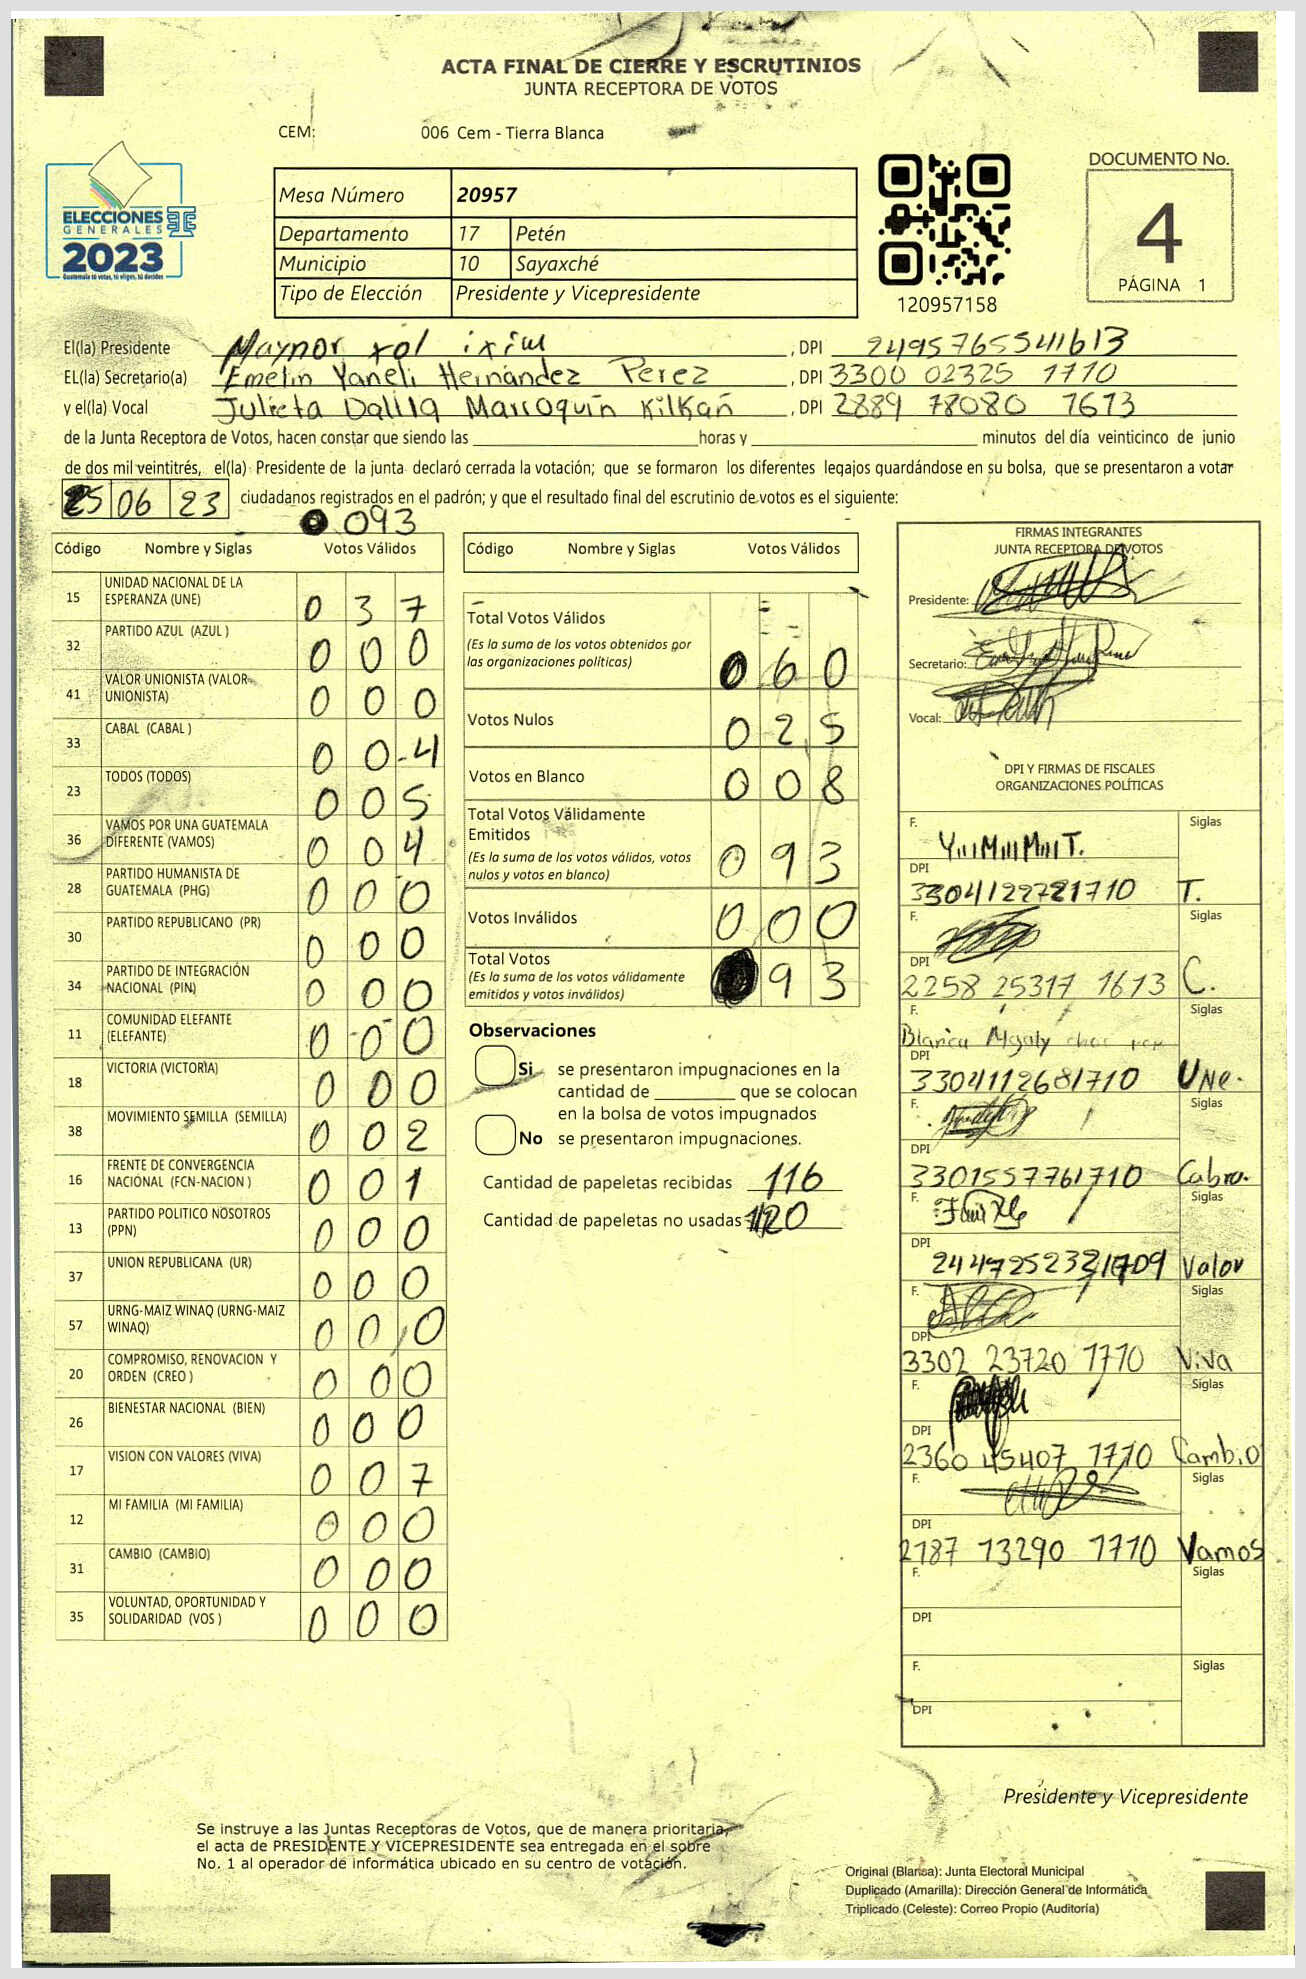 ACTA FINAL DE CIERRE Y ESCRUTINIOS
JUNTA RECEPTORA DE VOTOS
CEM: 006 Cem - Tierra Blanca
ELECCIONES
GENERALES
2023
Guatemala tú votas, tú eliges, tú decides
Mesa Número 20957
Departamento 17 Petén
Municipio 10 Sayaxché
Tipo de Elección Presidente y Vicepresidente
120957158
DOCUMENTO No.
4
PÁGINA 1
El(la) Presidente Maynor xol ixim , DPI 2495765541613
EL(la) Secretario(a) Emelin Yaneli Hernández Perez , DPI 3300 02325 1710
y el(la) Vocal Julieta Dalila Marroquín Kilkán , DPI 2889 78080 1613
de la Junta Receptora de Votos, hacen constar que siendo las horas y minutos del día veinticinco de junio
de dos mil veintitrés, el(la) Presidente de la junta declaró cerrada la votación; que se formaron los diferentes legajos guardándose en su bolsa, que se presentaron a votar
25 06 23 ciudadanos registrados en el padrón; y que el resultado final del escrutinio de votos es el siguiente:
093
Código Nombre y Siglas Votos Válidos
15 UNIDAD NACIONAL DE LA
ESPERANZA (UNE) 0 3 7
32 PARTIDO AZUL (AZUL ) 0 0 0
41 VALOR UNIONISTA (VALOR-
UNIONISTA) 0 0 0
33 CABAL (CABAL ) 0 0 4
23 TODOS (TODOS) 0 0 5
36 VAMOS POR UNA GUATEMALA
DIFERENTE (VAMOS) 0 0 4
28 PARTIDO HUMANISTA DE
GUATEMALA (PHG) 0 0 0
30 PARTIDO REPUBLICANO (PR) 0 0 0
34 PARTIDO DE INTEGRACIÓN
NACIONAL (PIN) 0 0 0
11 COMUNIDAD ELEFANTE
(ELEFANTE) 0 0 0
18 VICTORIA (VICTORIA) 0 0 0
38 MOVIMIENTO SEMILLA (SEMILLA) 0 0 2
16 FRENTE DE CONVERGENCIA
NACIONAL (FCN-NACION ) 0 0 1
13 PARTIDO POLITICO NOSOTROS
(PPN) 0 0 0
37 UNION REPUBLICANA (UR) 0 0 0
57 URNG-MAIZ WINAQ (URNG-MAIZ
WINAQ) 0 0 0
20 COMPROMISO, RENOVACION Y
ORDEN (CREO ) 0 0 0
26 BIENESTAR NACIONAL (BIEN) 0 0 0
17 VISION CON VALORES (VIVA) 0 0 7
12 MI FAMILIA (MI FAMILIA) 0 0 0
31 CAMBIO (CAMBIO) 0 0 0
35 VOLUNTAD, OPORTUNIDAD Y
SOLIDARIDAD (VOS ) 0 0 0
Código Nombre y Siglas Votos Válidos
Total Votos Válidos
(Es la suma de los votos obtenidos por
las organizaciones políticas) 0 6 0
Votos Nulos 0 2 5
Votos en Blanco 0 0 8
Total Votos Válidamente
Emitidos
(Es la suma de los votos válidos, votos
nulos y votos en blanco) 0 9 3
Votos Inválidos 0 0 0
Total Votos
(Es la suma de los votos válidamente
emitidos y votos inválidos) 9 3
Observaciones
Si se presentaron impugnaciones en la
cantidad de que se colocan
en la bolsa de votos impugnados
No se presentaron impugnaciones.
Cantidad de papeletas recibidas 116
Cantidad de papeletas no usadas
FIRMAS INTEGRANTES
JUNTA RECEPTORA DE VOTOS
Presidente:
Secretario:
Vocal:
DPI Y FIRMAS DE FISCALES
ORGANIZACIONES POLÍTICAS
F. Siglas
DPI
3304122721710 T.
F. Siglas
DPI
2258 25317 1613 C.
F. Siglas
Blanca Magaly
DPI
3304112681710 UNe.
F. Siglas
DPI
3301557761710 Cabra.
F. Siglas
DPI
Valor
F. Siglas
DPI
3302 23720 1710 Viva
F. Siglas
DPI
2360 45407 1710 Cambio
F. Siglas
DPI
2787 13290 1710 Vamos
F. Siglas
DPI
F. Siglas
DPI
Presidente y Vicepresidente
Se instruye a las Juntas Receptoras de Votos, que de manera prioritaria,
el acta de PRESIDENTE Y VICEPRESIDENTE sea entregada en el sobre
No. 1 al operador de informática ubicado en su centro de votación.
Original (Blanca): Junta Electoral Municipal
Duplicado (Amarilla): Dirección General de Informática
Triplicado (Celeste): Correo Propio (Auditoría)